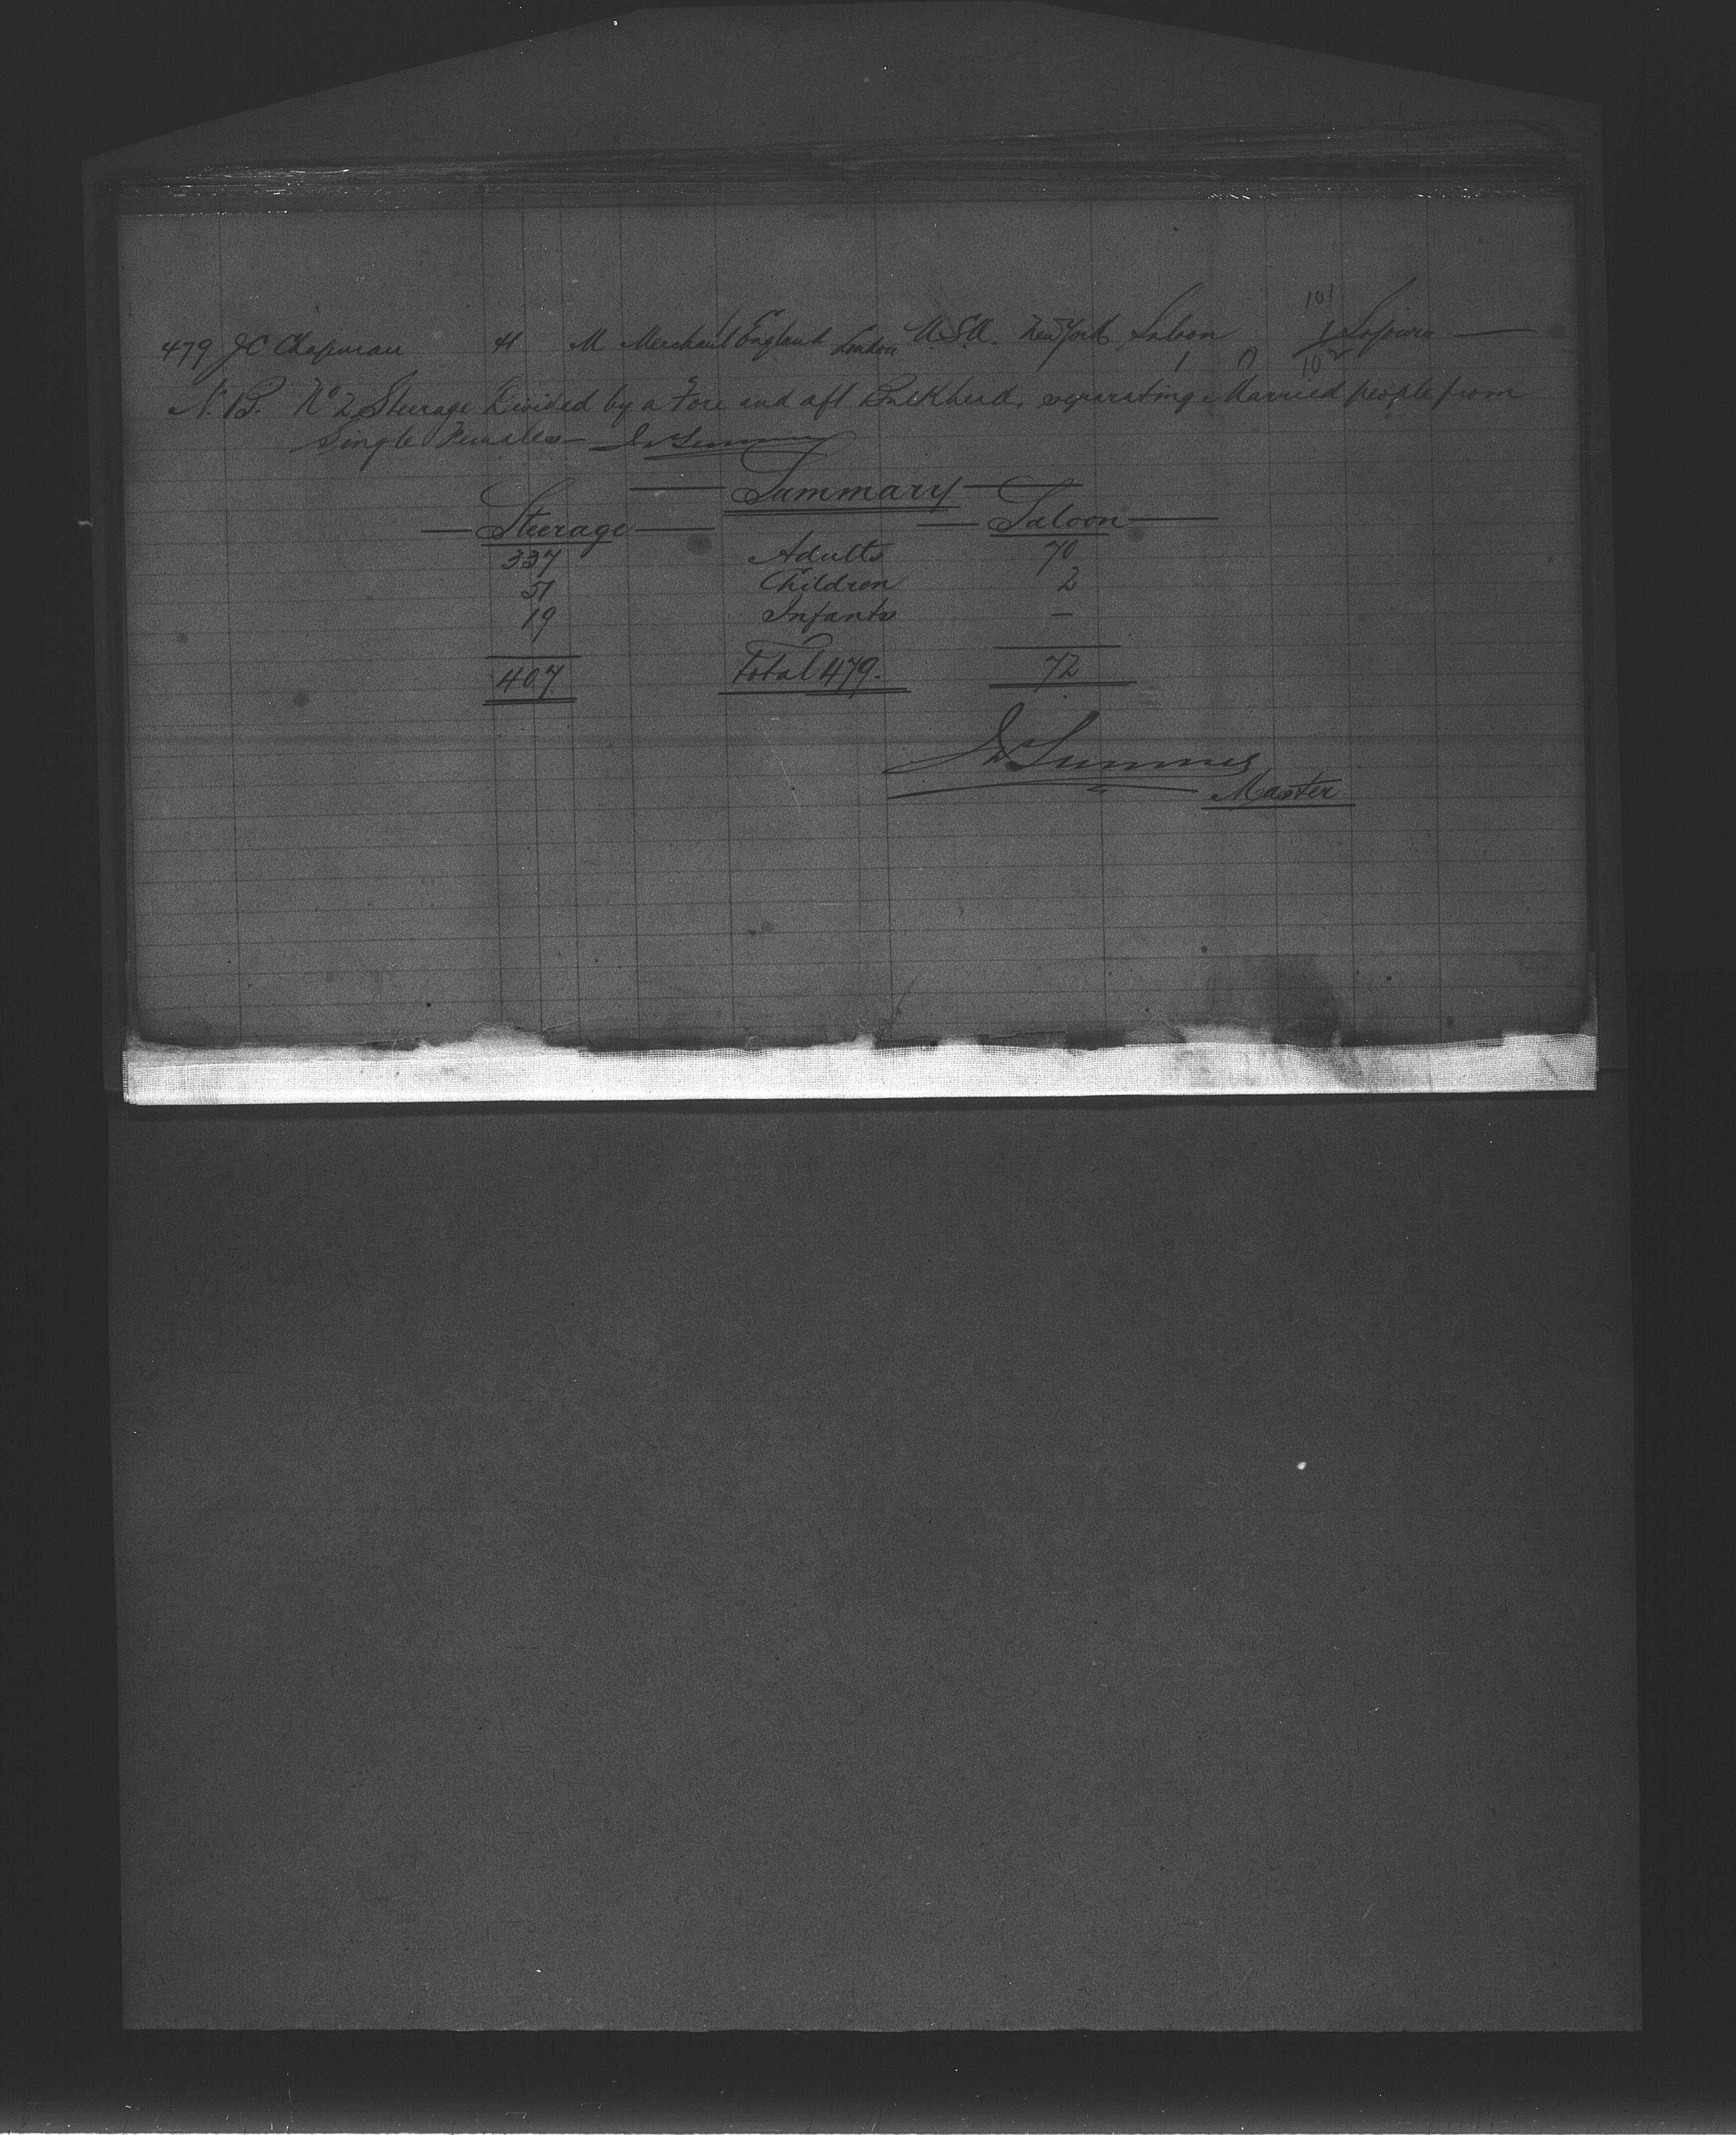 101
479 J C Chapman 41 M Merchant England London U.S.A. New York Saloon 1 Sojourn —
1 0 102
N. B. No 2 Steerage Divided by a Fore and aft Bulkhead, separating Married people from
Single Females —
— Summary —
— Steerage — — Saloon —
337 Adults 70
51 Children 2
19 Infants —
407 Total 479. 72
Master